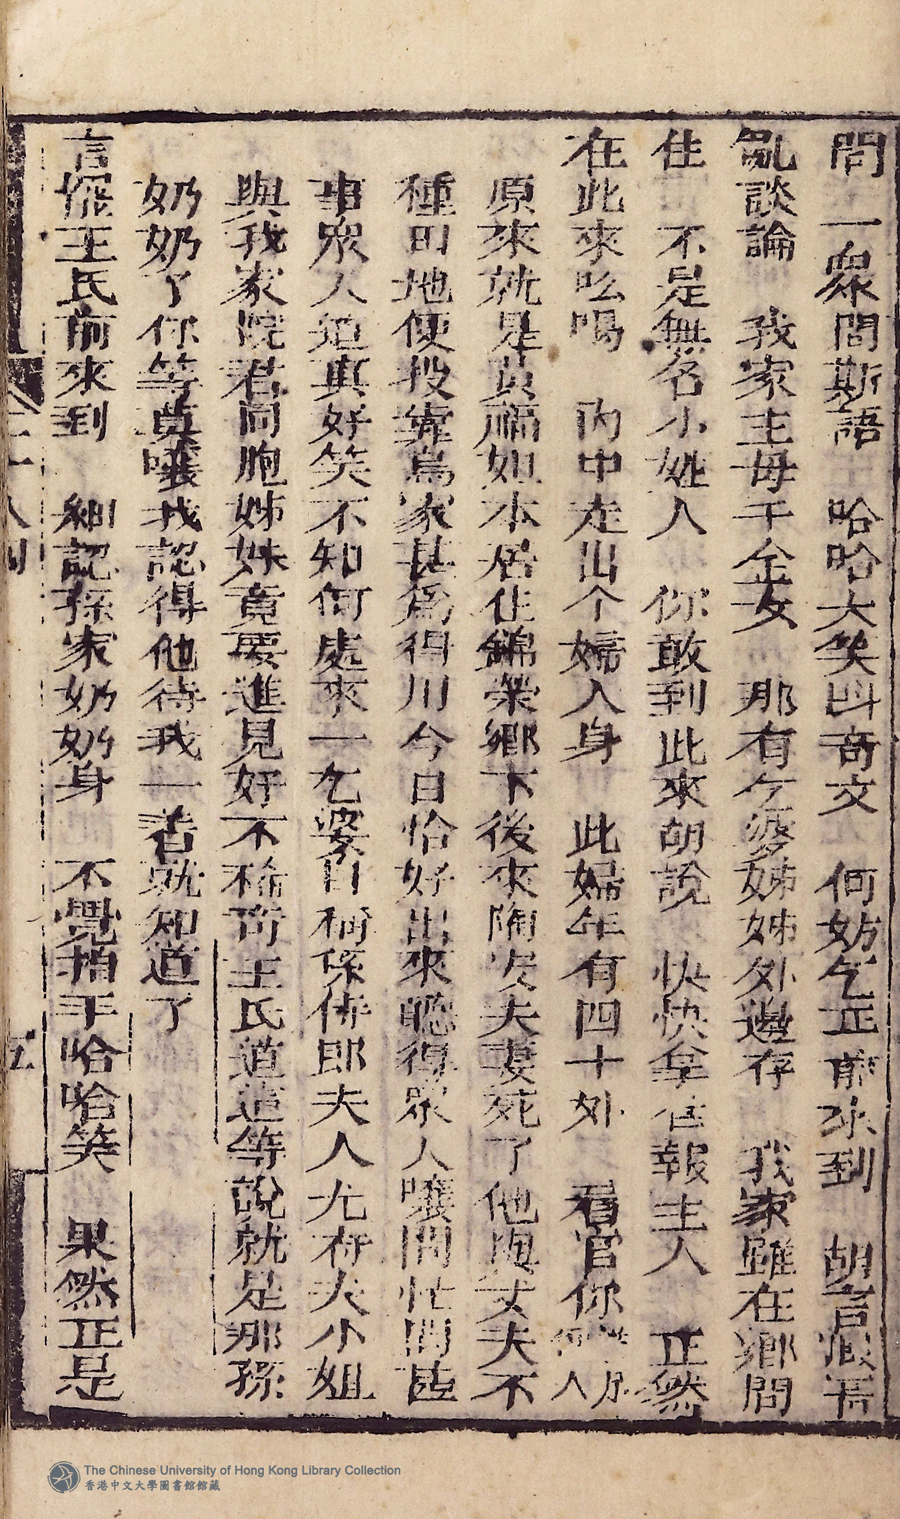 問　一衆聞斯語　哈哈大笑呌奇文　何妨乞正前來到　胡言
亂談論　我家主母千金女　那有个婆姊姊外邊存　我家雖在鄉間
住　不是無名小姓人　你敢到此來胡說　快快拿住報主人　正然
在此來吆喝　內中走出个婦人身　此婦年有四十外　看官你
原來就是黃福姐本居住錦榮鄉下後來陶安夫妻死了他與丈夫不
種田地便投靠烏家甚爲得用今日恰好出來聽得衆人嚷鬧忙問甚
事衆人道真好笑不知何處來一乞婆自稱係侍郎夫人尤府大小姐
與我家院君同胞姊妹竟要進見好不稀奇王氏道這等說就是那孫
奶奶了你等莫嚷我認得他待我一看就知道了
言罷王氏前來到　細認孫家奶奶身　不覺拍手哈哈笑　果然正是
二十八回
五
The Chinese University of Hong Kong Library Collection
香港中文大學圖書館館藏